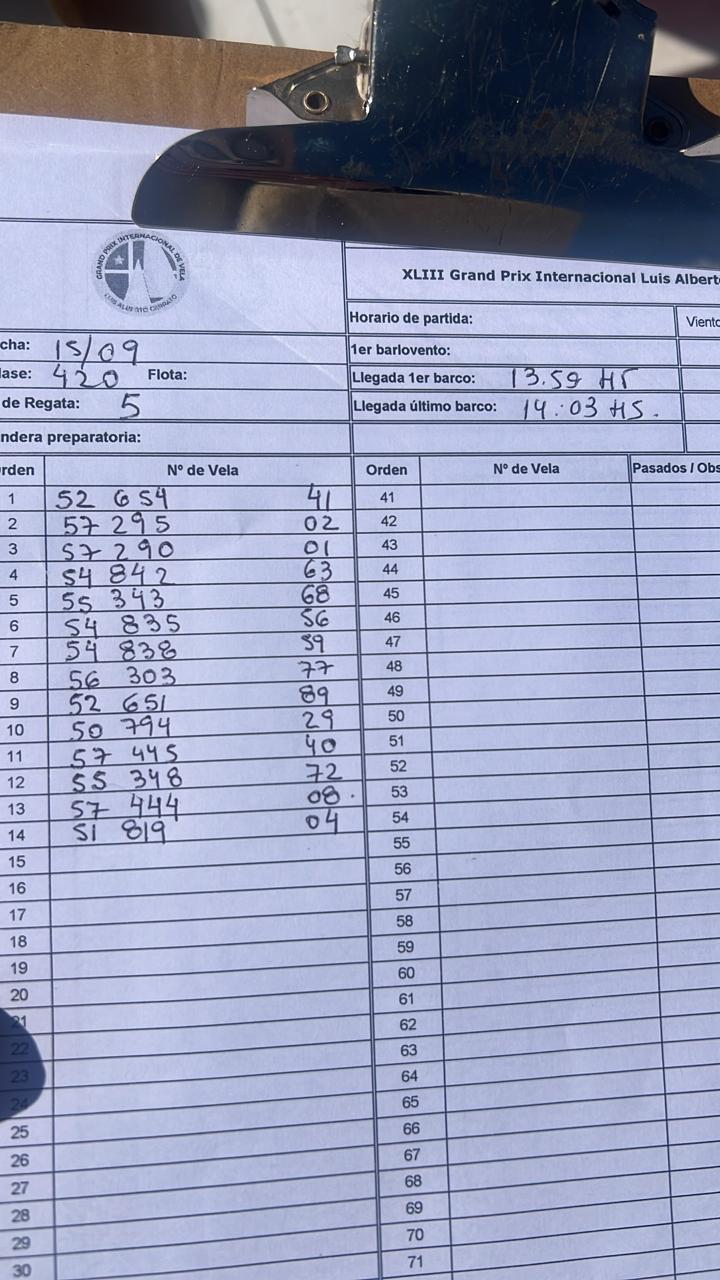 GRAND PRIX INTERNACIONAL DE VELA
LUIS ALBERTO CERRATO
XLIII Grand Prix Internacional Luis Albert
Horario de partida:
Viento
cha: 15/09
1er barlovento:
lase: 420 Flota:
Llegada 1er barco: 13.59 Hs
de Regata: 5
Llegada último barco: 14:03 HS.
ndera preparatoria:
rden Nº de Vela Orden Nº de Vela Pasados / Obs
1 52 654 41 41
2 57 295 02 42
3 57 290 01 43
4 54 842 63 44
5 55 343 68 45
6 54 835 56 46
7 54 838 59 47
8 56 303 77 48
9 52 651 89 49
10 50 794 29 50
11 57 445 40 51
12 55 348 72 52
13 57 444 08. 53
14 51 819 04 54
15 55
16 56
17 57
18 58
19 59
20 60
21 61
22 62
23 63
24 64
25 65
26 66
27 67
28 68
29 69
30 70
71